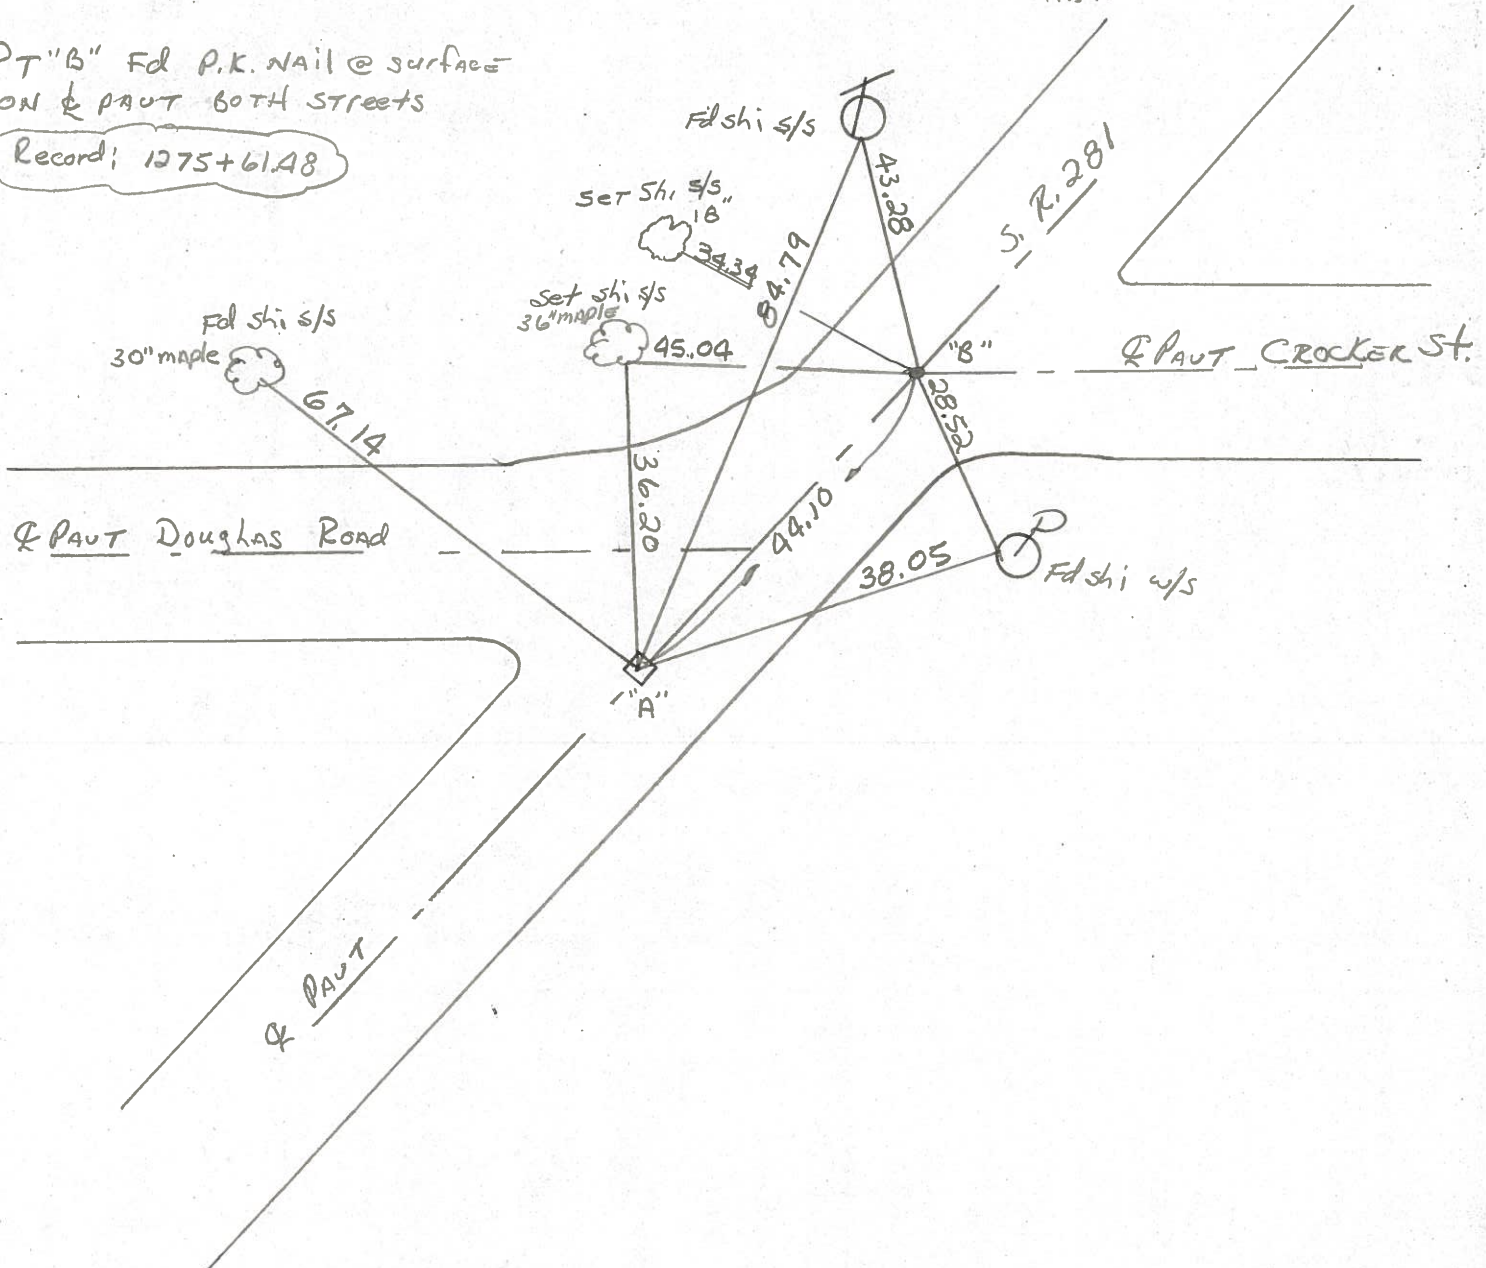 PT "B" Fd P.K. NAil @ surface
ON ℄ PAVT BOTH Streets
Record: 1275+61.48
Fd shi s/s
43.28
S. R. 281
Set Shi s/s
18"
34.34
84.79
Set shi s/s
36" MAPLE
45.04
Fd shi s/s
30" MAple
67.14
"B"
℄ PAVT CROCKER St.
28.52
36.20
44.10
℄ PAVT Douglas Road
38.05
Fd shi w/s
"A"
℄ PAVT